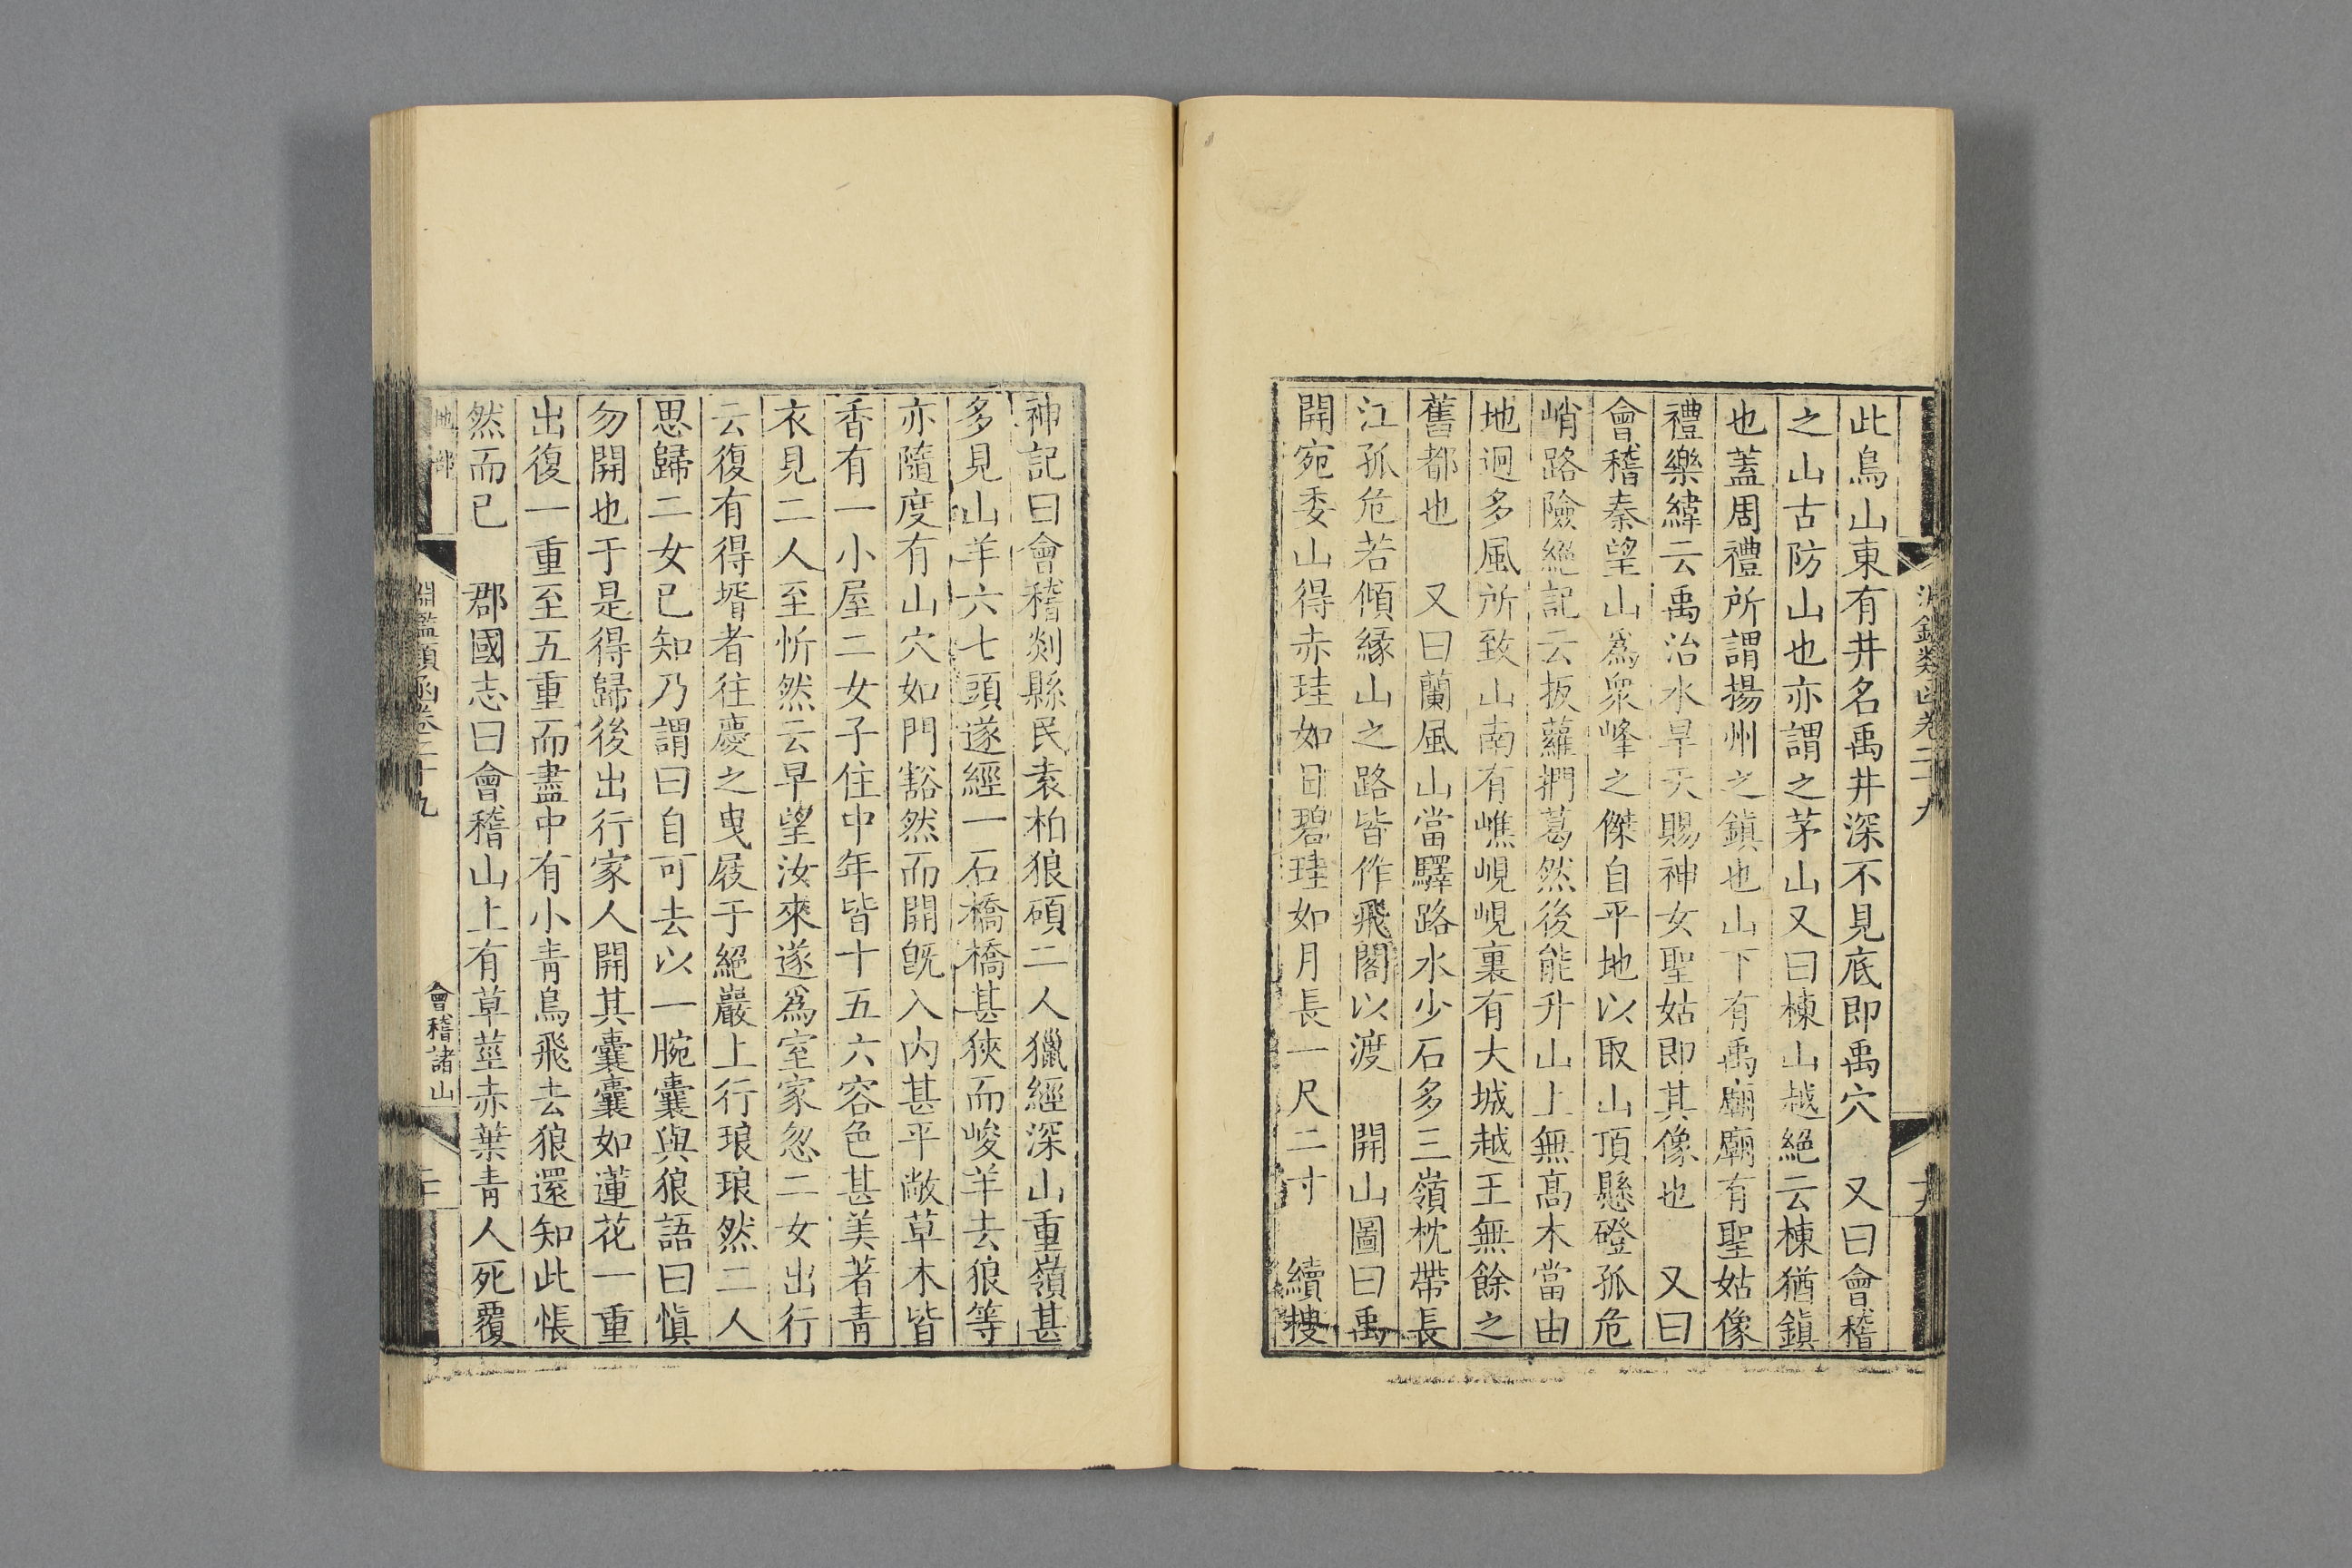 此鳥山東有井名禹井深不見底即禹穴　又曰會稽
之山古防山也亦謂之茅山又曰棟山越絕云棟猶鎮
也蓋周禮所謂揚州之鎮也山下有禹廟廟有聖姑像
禮樂緯云禹治水旱天賜神女聖姑即其像也　又曰
會稽秦望山爲衆峰之傑自平地以取山頂懸磴孤危
峭路險絕記云扳蘿捫葛然後能升山上無髙木當由
地迥多風所致山南有嶕峴峴裏有大城越王無餘之
舊都也　又曰蘭風山當驛路水少石多三嶺枕帶長
江孤危若傾縁山之路皆作飛閣以渡　開山圖曰禹
開宛委山得赤珪如日碧珪如月長一尺二寸　續搜
神記曰會稽剡縣民袁柏狼碩二人獵經深山重嶺甚
多見山羊六七頭遂經一石橋橋甚狹而峻羊去狼等
亦隨度有山穴如門豁然而開旣入内甚平敞草木皆
香有一小屋二女子住中年皆十五六容色甚美著青
衣見二人至忻然云早望汝來遂爲室家忽二女出行
云復有得壻者往慶之曳屐于絕巖上行琅琅然二人
思歸二女已知乃謂曰自可去以一腕囊與狼語曰愼
勿開也于是得歸後出行家人開其囊囊如蓮花一重
出復一重至五重而盡中有小青鳥飛去狼還知此悵
然而已　郡國志曰會稽山上有草莖赤葉青人死覆
地部
淵鑑類函卷二十九
會稽諸山